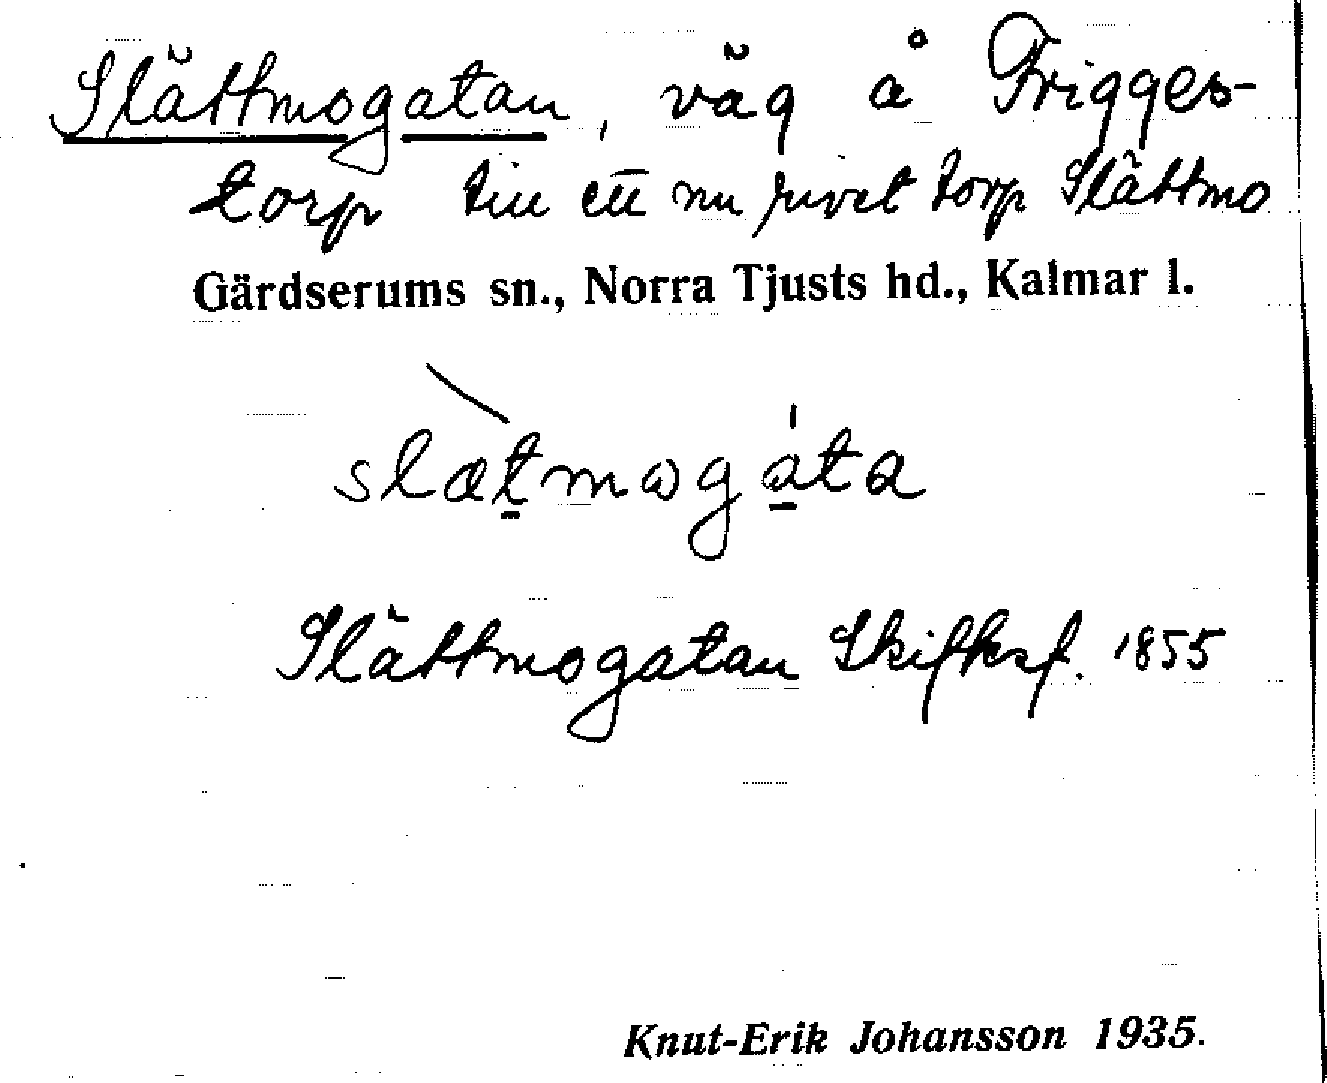 Slättmogatan, väg å Frigges-
torp till ett nu rivet torp Slättmo
Gärdserums sn., Norra Tjusts hd., Kalmar l.
slætmogata
Slättmogatan Skifksf. 1855
Knut-Erik Johansson 1935.